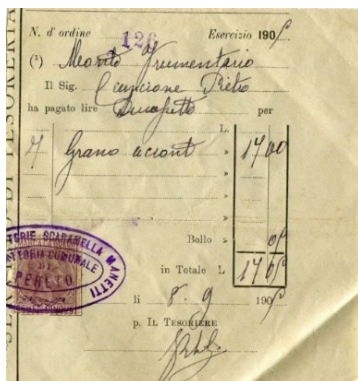 N. d'ordine 126 Esercizio 190
(¹) Monte Frumentario
Il Sig. Camcione Pietro
ha pagato lire per
L.
Grano acconto 17 00
»
»
»
Bollo » 05
in Totale L 17 05
li 8. 9 190
p. IL TESORIERE
DI TESORERIA
SCARAMELLA MANETTI
ESATTORIA COMUNALE
DI
PERETO